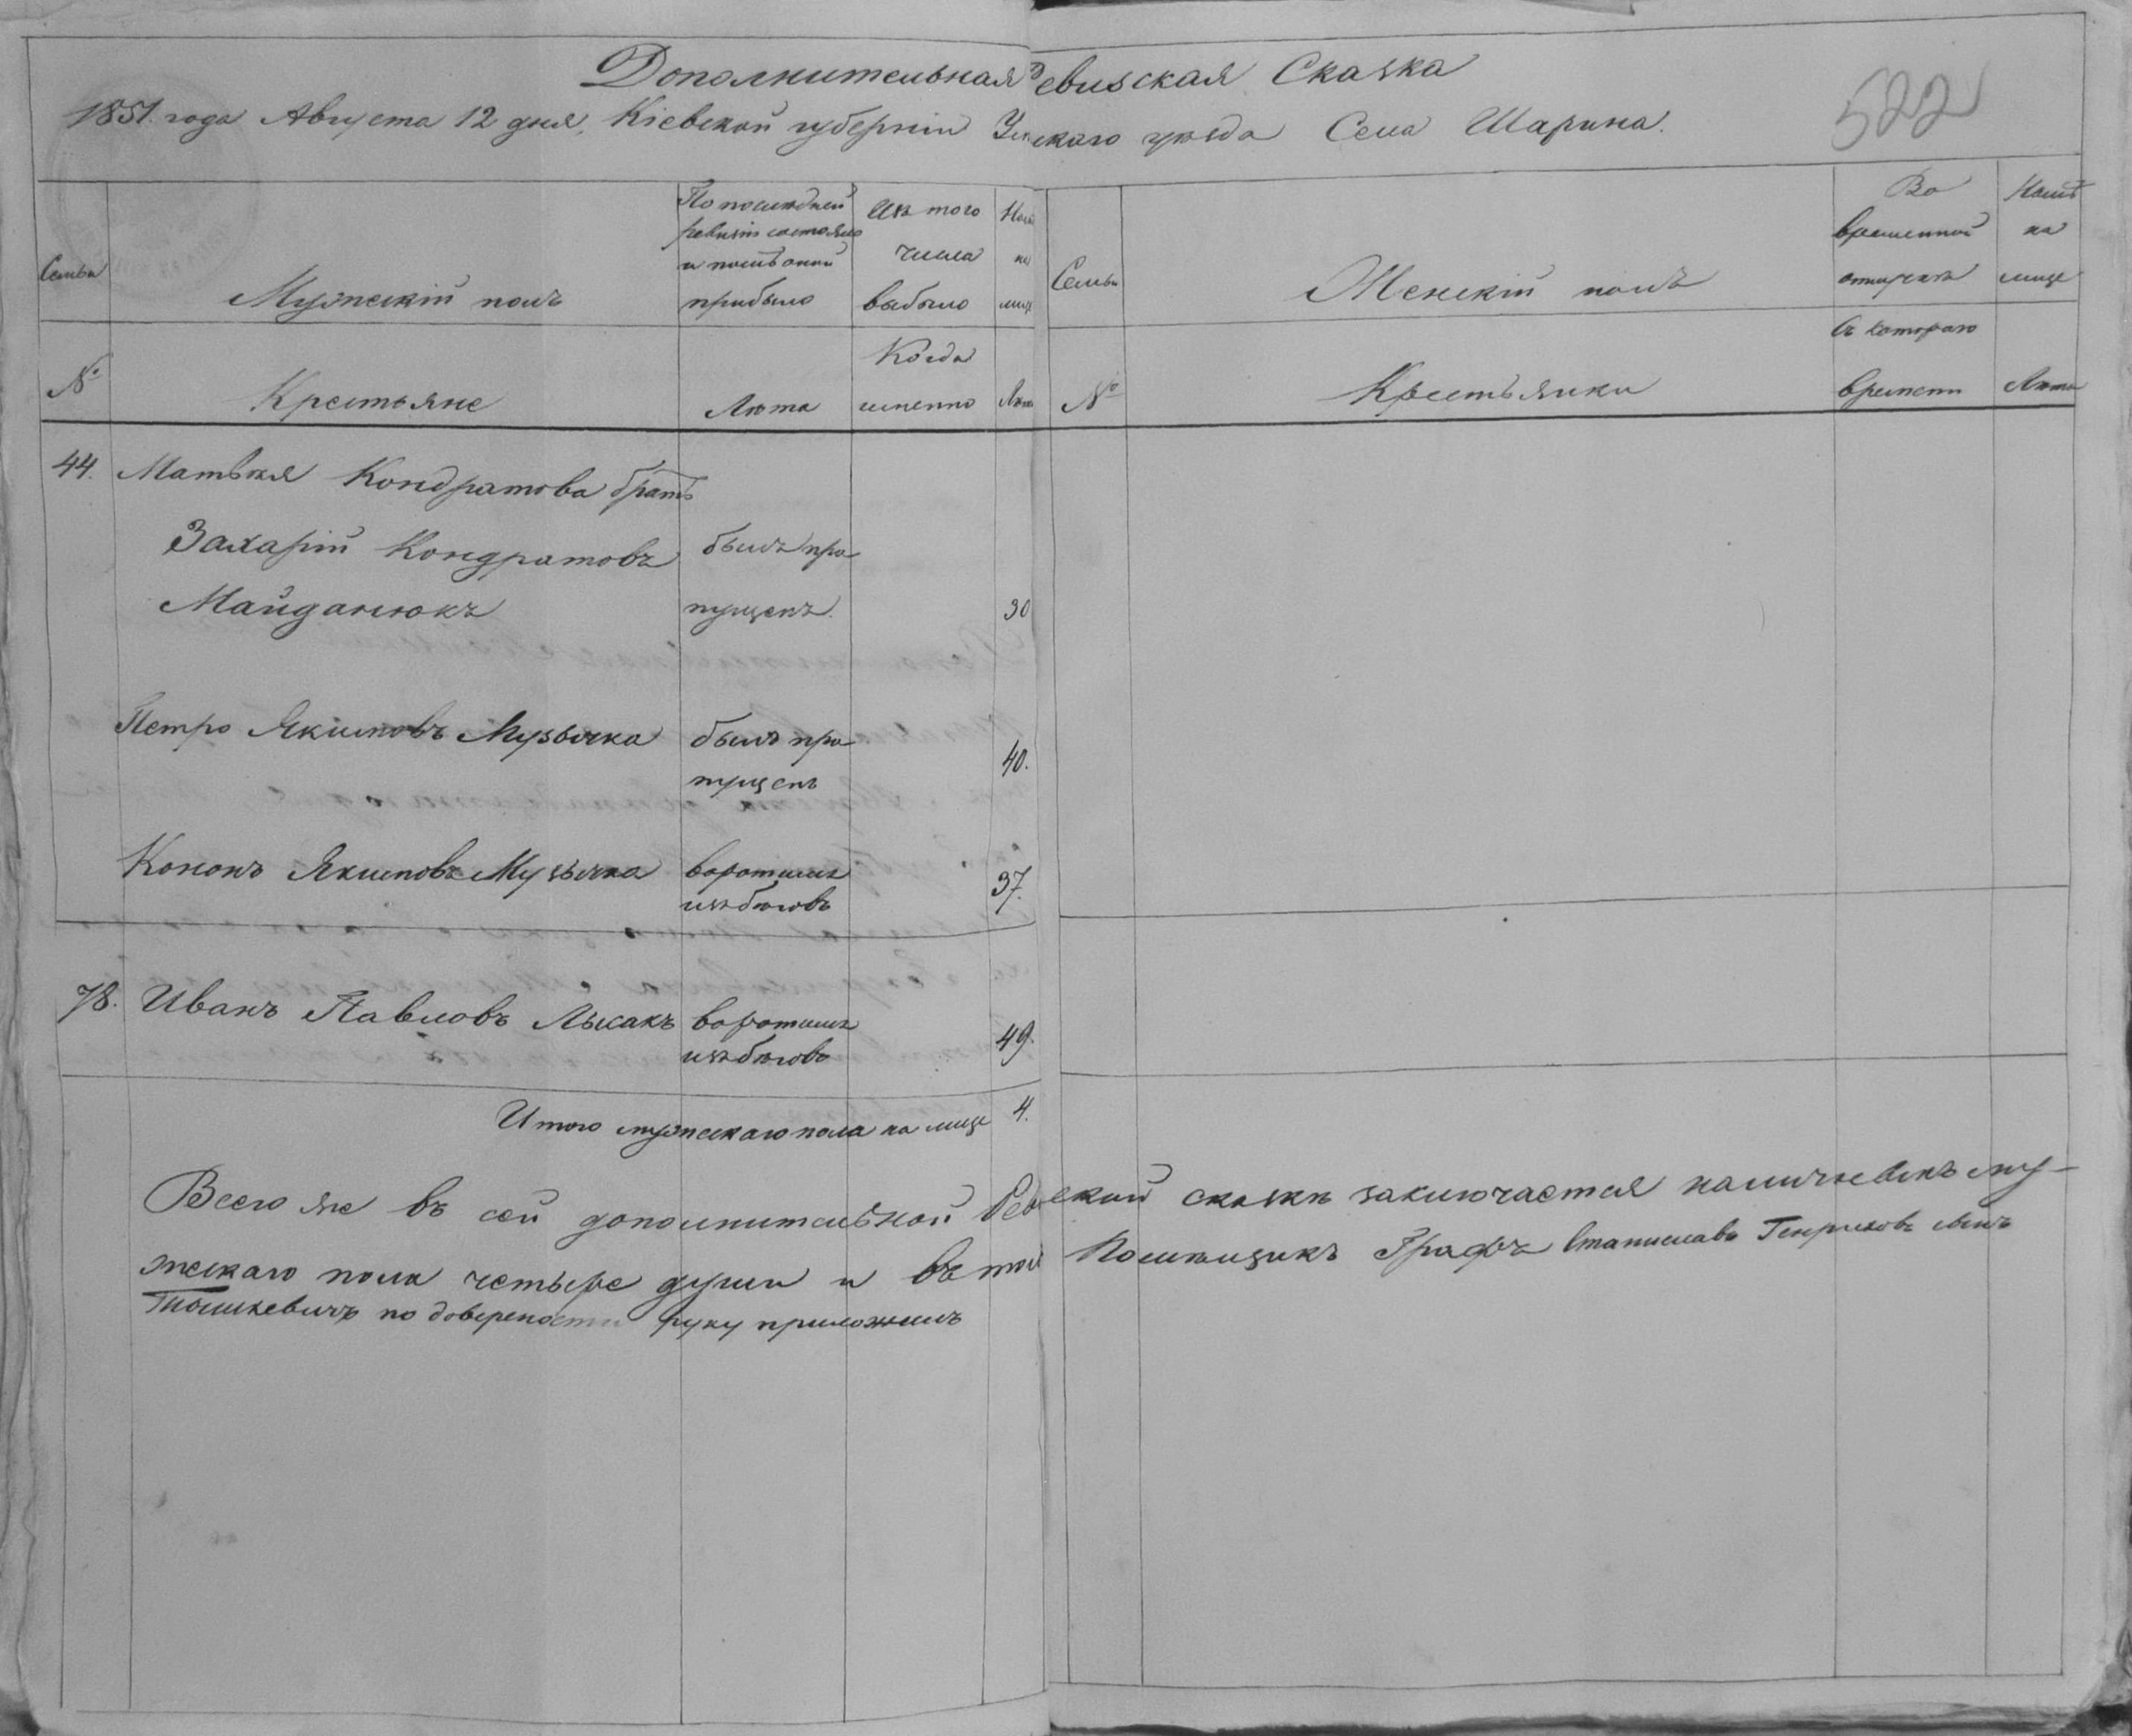 Дополнительная Ревизская Сказка
1851 года Августа 12 дня, Кіевской губерніи Уманскаго уѣзда Села Шарина.
522
Семьи
Мужескій полъ
По послѣдней
ревизіи состояло
и послѣ оной
прибыло
Изъ того
числа
выбыло
Нынѣ
на
лице
Семьи
Женскій полъ
Во
временной
отлучкѣ
Нынѣ
на
лице
№
Крестьяне
Лѣта
Когда
именно
Лѣта
№
Крестьянки
Съ котораго
времени
Лѣта
44. Матвѣя Кондратова братъ
Захарій Кондратовъ былъ про-
Майданюкъ пущенъ. 30
Петро Якимовъ Музычка былъ про
пущенъ 40.
Кононъ Якимовъ Музычка воротился
изъ бѣговъ 37.
78. Иванъ Павловъ Лысакъ воротился
изъ бѣговъ 49.
Итого мужескаго пола на лице 4.
Всего же въ сей дополнительной Ревизской сказкѣ заключается наличныхъ му-
жескаго пола четыре души и въ той Помѣщикъ Графъ Станиславъ Генриховъ сынъ
Тышкевичъ по довереності руку приложилъ